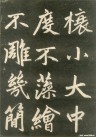 榱小大中
度不藻繪
不雕幾簡